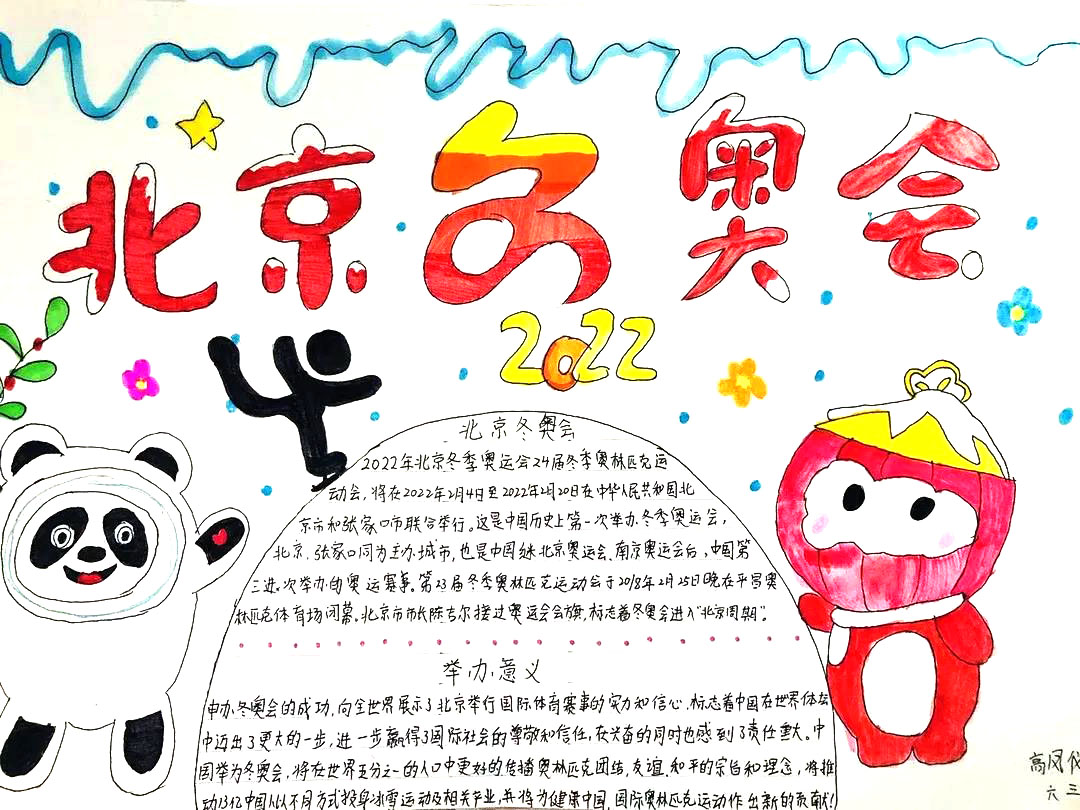 北京冬奥会
2022
北京冬奥会
2022年北京冬季奥运会24届冬季奥林匹克运
动会,将在2022年2月4日至2022年2月20日在中华人民共和国北
京市和张家口市联合举行。这是中国历史上第一次举办冬季奥运会,
北京、张家口同为主办城市,也是中国继北京奥运会、南京奥运会后,中国第
三进次举办的奥运赛事。第23届冬季奥林匹克运动会于2018年2月25日晚在平写奥
林匹克体育场闭幕。北京市市长陈吉尔接过奥运会会旗,标志着冬奥会进入"北京周期"。
举办意义
申办冬奥会的成功,向全世界展示了北京举行国际体育赛事的实力和信心,标志着中国在世界体坛
中迈出了更大的一步,进一步赢得了国际社会的尊敬和信任,在兴奋的同时也感到了责任重大。中
国举办冬奥会,将在世界五分之一的人口中更好的传播奥林匹克团结,友谊、和平的宗旨和理念,将推
动13亿中国人以不同方式投身冰雪运动及相关产业,并将为健康中国,国际奥林匹克运动作出新的贡献!
高风仪
六三